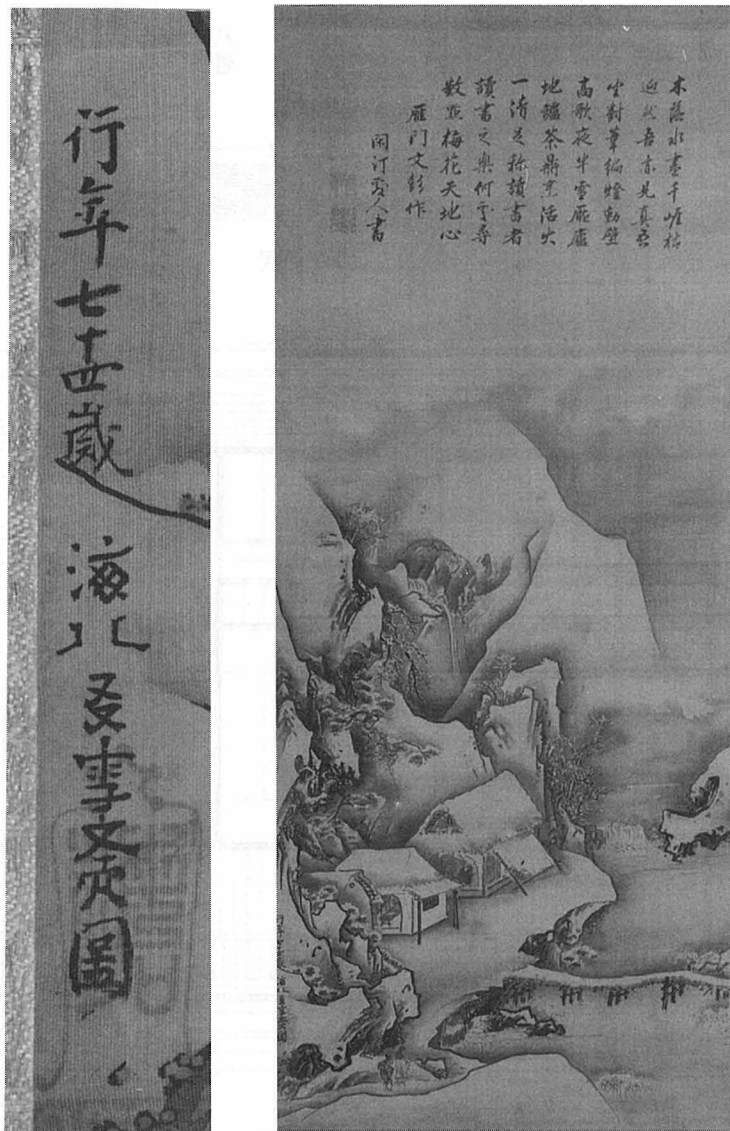 行年七十四歳 海北友雪 圖
木落水盡千崖枯
迥然吾亦見真吾
坐對韋編燈動壁
高歌夜半雪壓廬
地爐茶鼎烹活火
一清足称讀書者
讀書之樂何處尋
數點梅花天地心
雁門文彭作
閑汀 人書